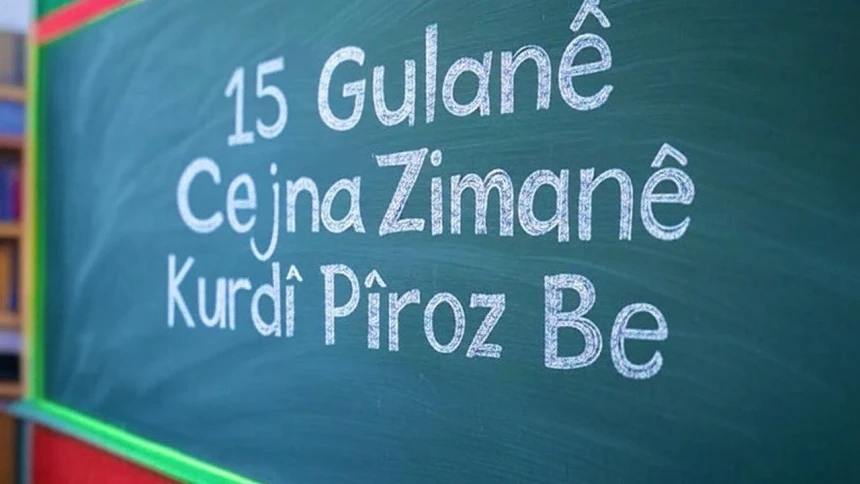 15 Gulanê
Cejna Zimanê
Kurdî Pîroz Be